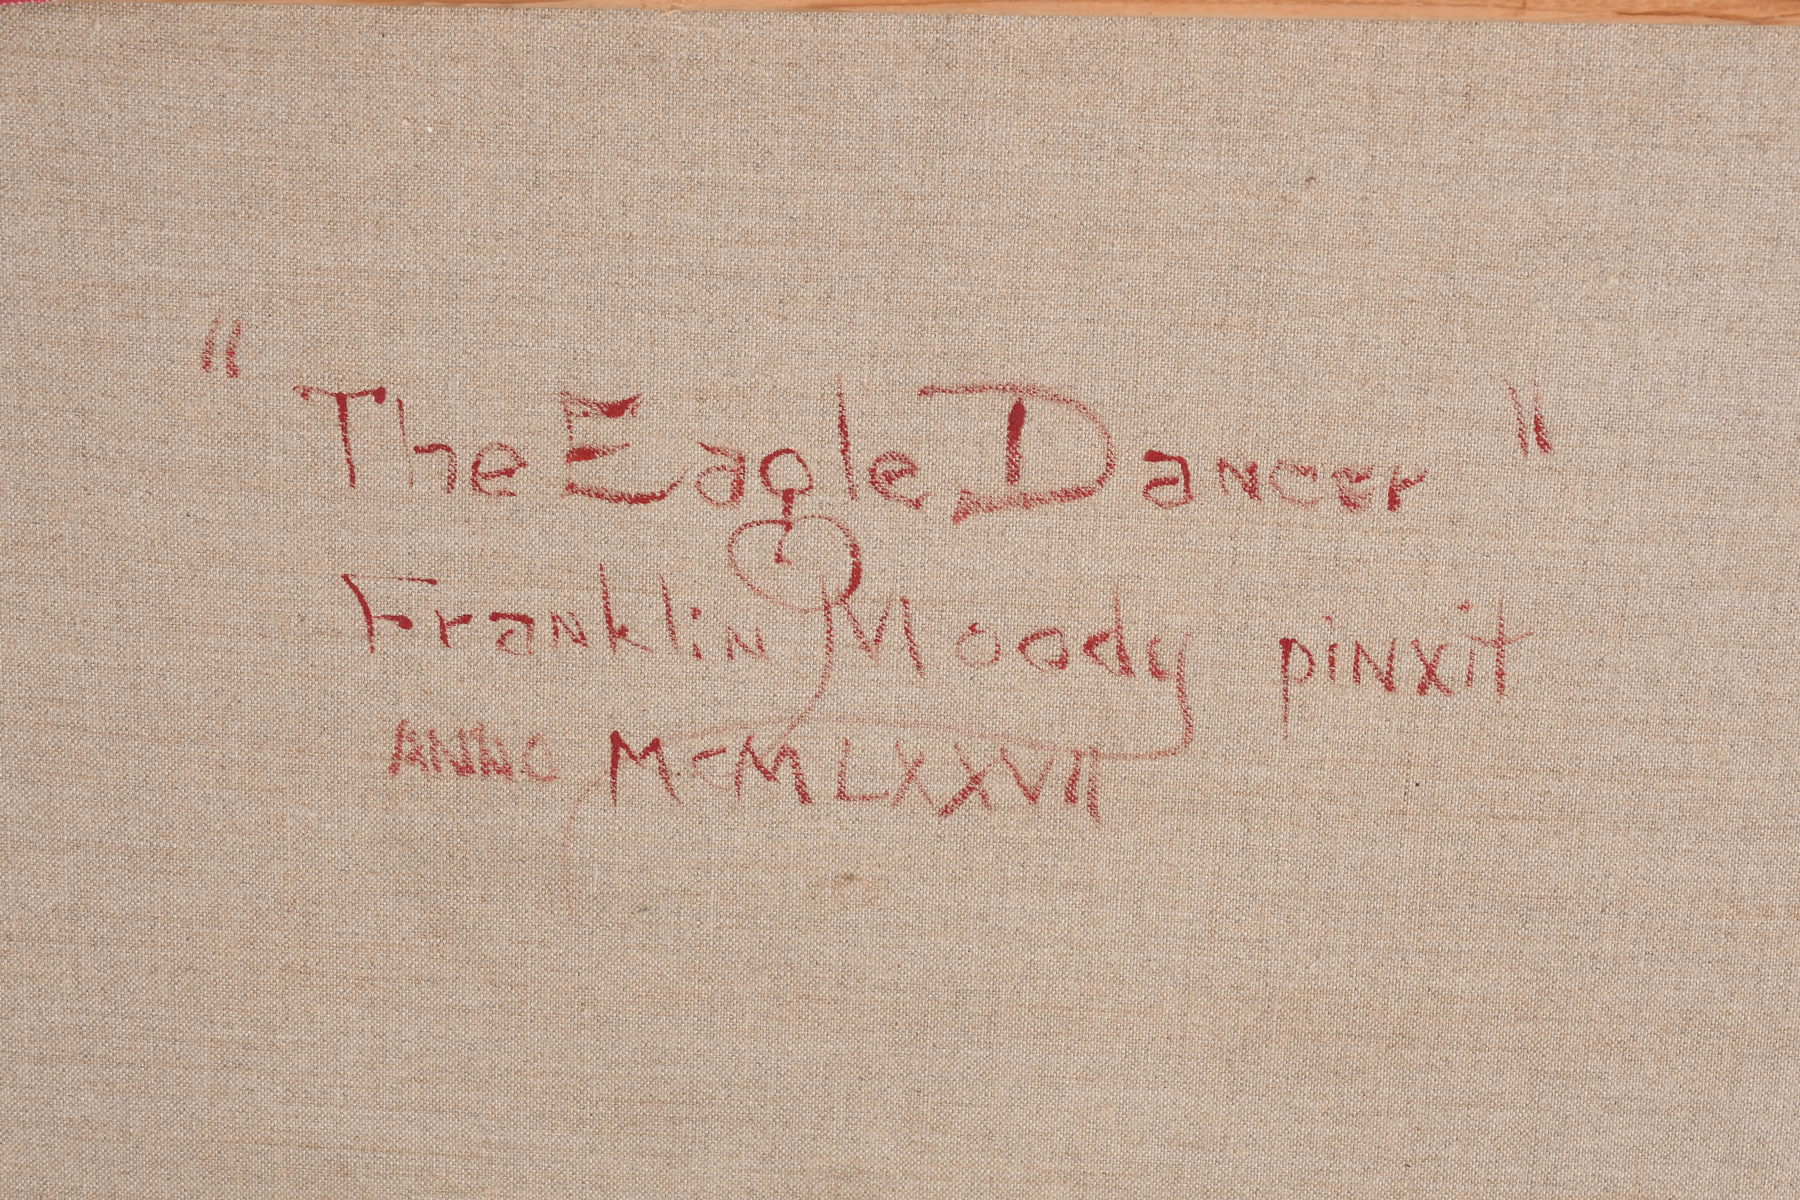 "The Eagle Dancer"
Franklin Moody pinxit
ANNO MCMLXXVII